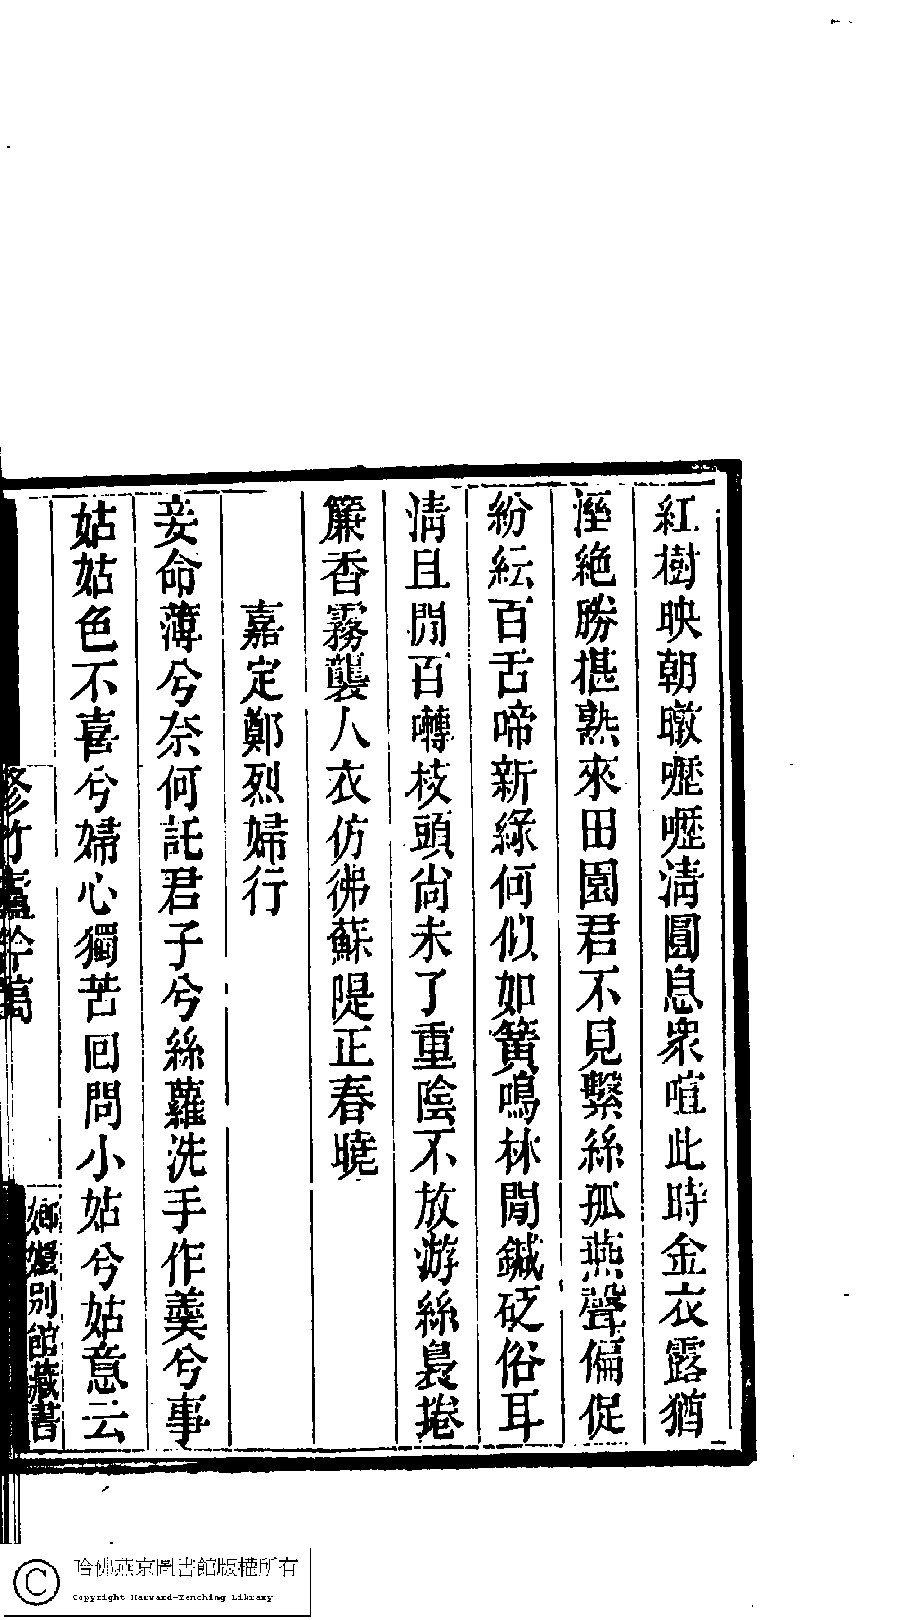 紅樹映朝暾嚦嚦清圓息衆喧此時金衣露猶
溼絶勝椹熟來田園君不見繫絲孤燕聲偏促
紛紜百舌啼新綠何似如簧鳴林閒鍼砭俗耳
清且閒百囀枝頭尚未了重陰不放游絲裊捲
簾香霧襲人衣仿彿蘇隄正春曉
嘉定鄭烈婦行
妾命薄兮奈何託君子兮絲蘿洗手作羹兮事
姑姑色不喜兮婦心獨苦回問小姑兮姑意云
修竹廬吟稿
嫏嬛別館藏書
哈佛燕京圖書館版權所有
Copyright Harvard-Yenching Library